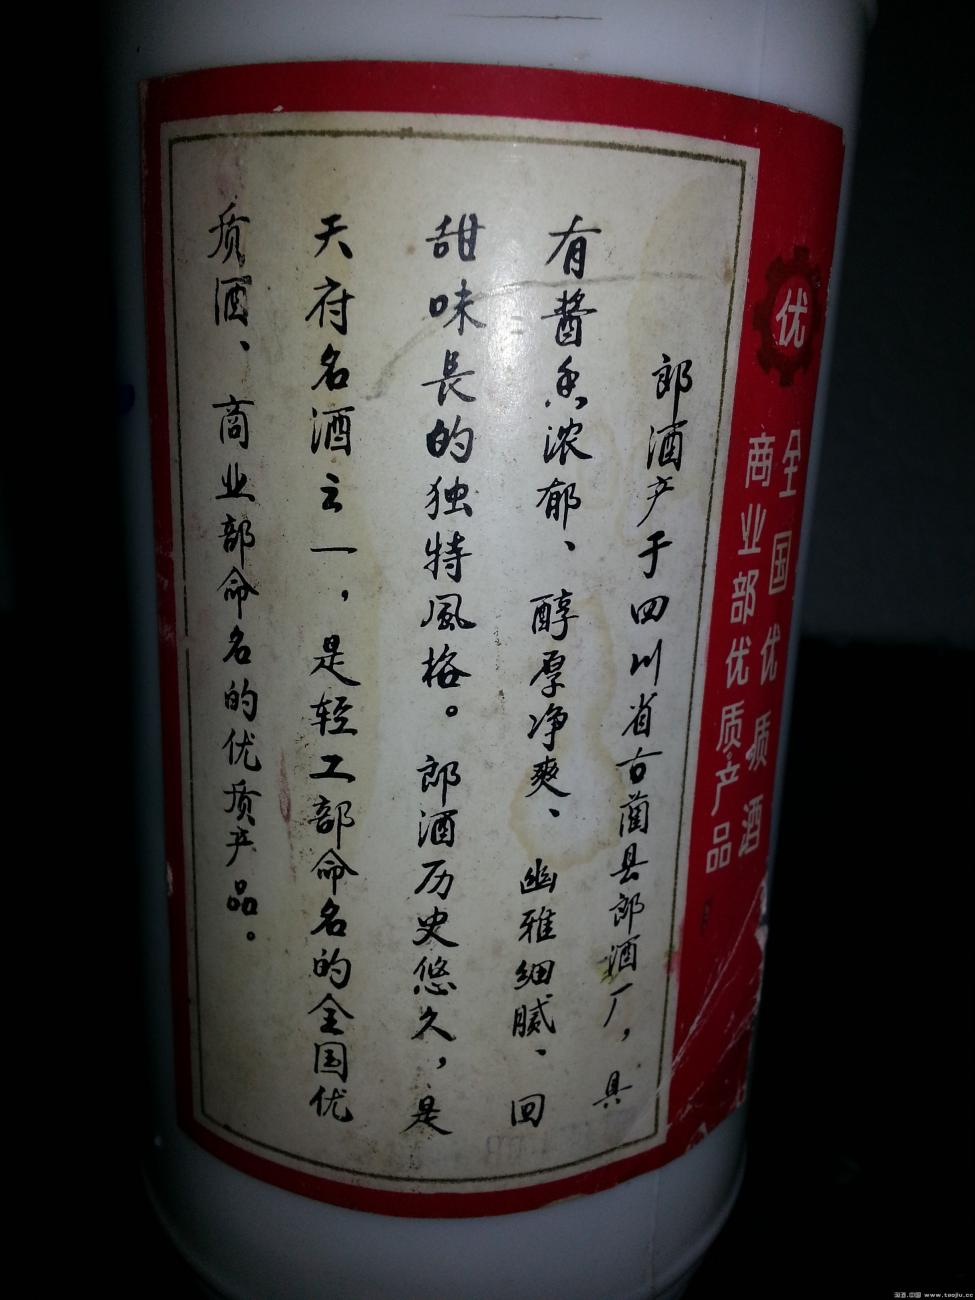 优
全国优质酒
商业部优质产品
郎酒产于四川省古蔺县郎酒厂，具
有醬香浓郁、醇厚净爽、幽雅细腻、回
甜味長的独特風格。郎酒历史悠久，是
天府名酒之一，是轻工部命名的全国优
质酒、商业部命名的优质产品。
淘酒.中国 www.taojiu.cc